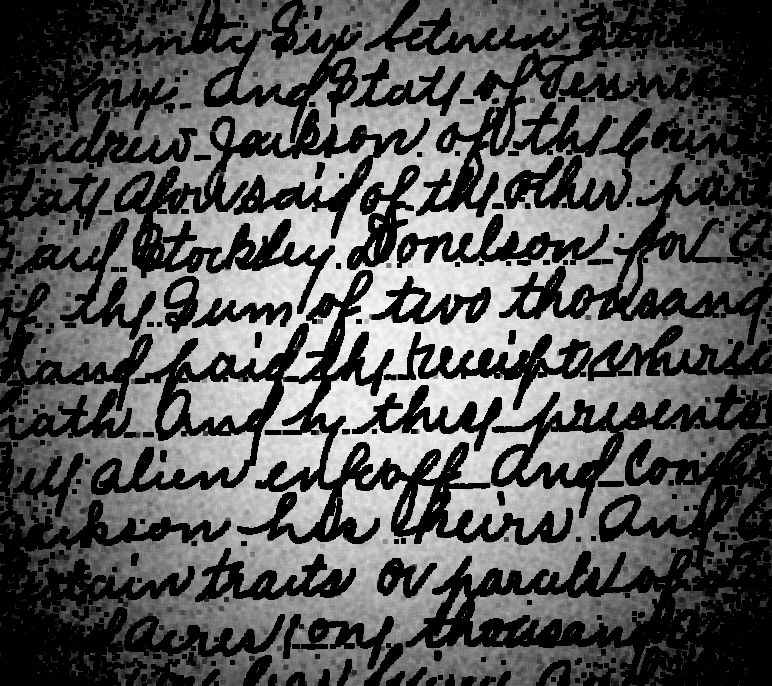 Six between Stock
Knox And State of Tennes
Andrew Jackson of the Coun
State aforesaid of the other par
Said Stockley Donelson for a
of the Sum of two thousand
hand paid the receipt where
hath And by these presents
sell alien enfeoff And Confir
Jackson his heirs And
certain tracts or parcels of
Acres one thousand